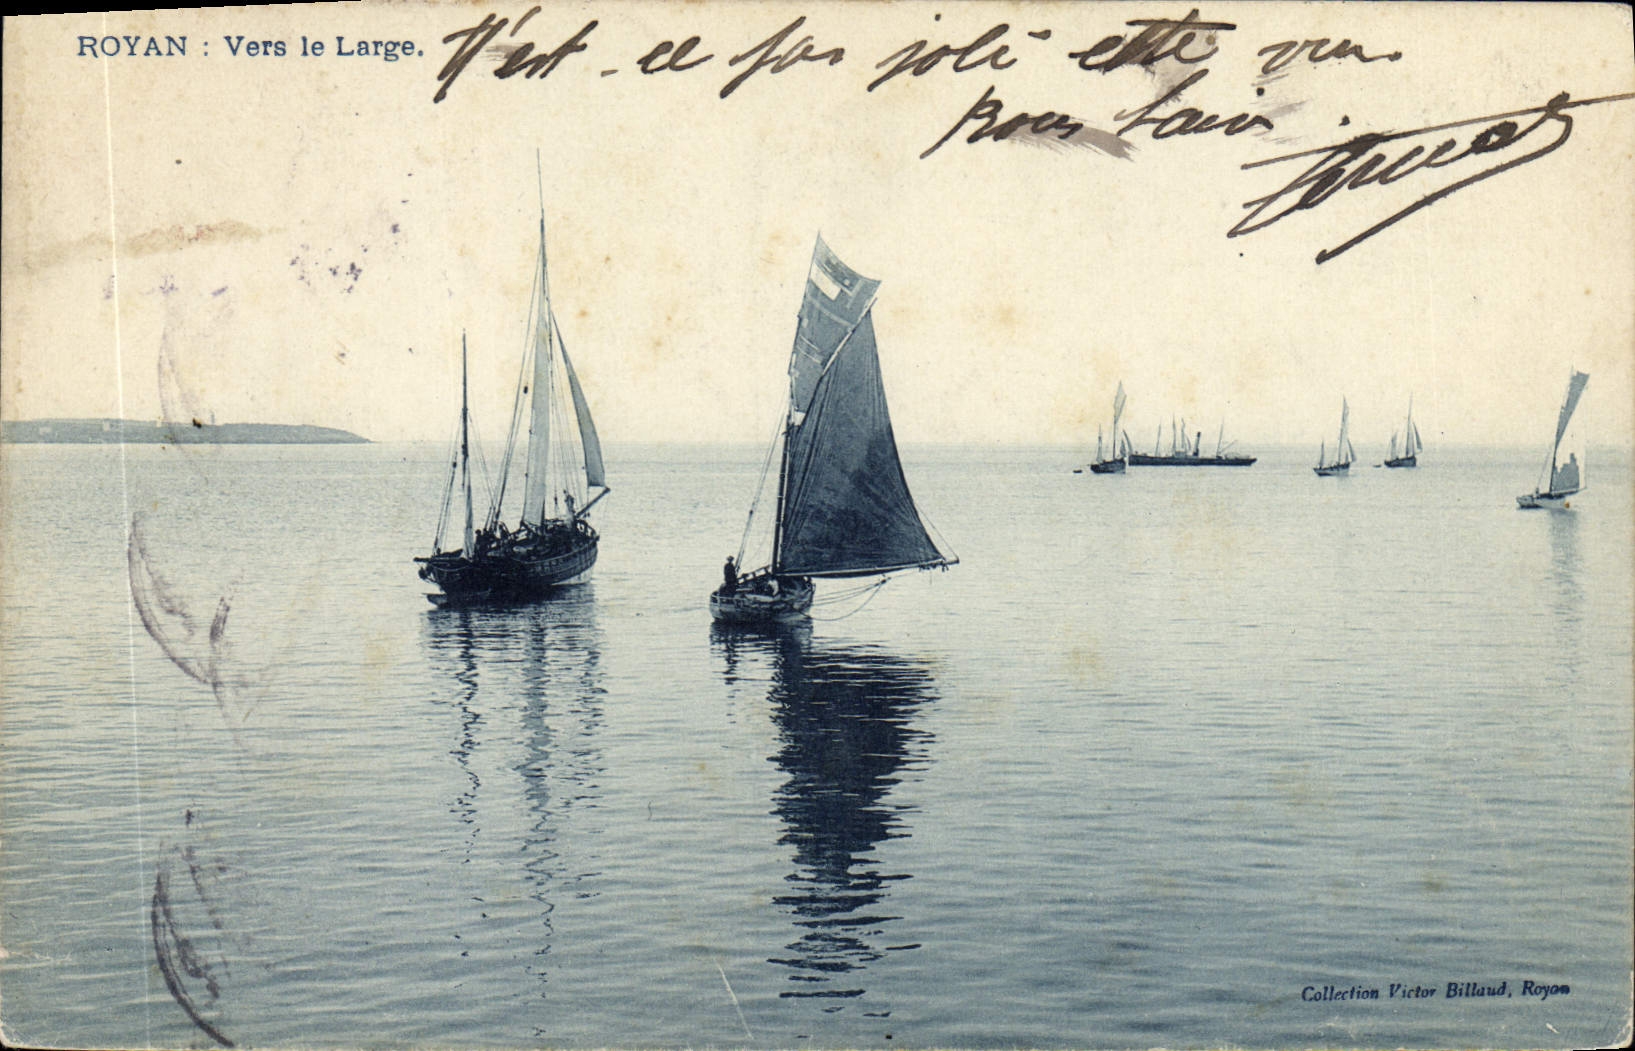 ROYAN : Vers le Large.
N'est-ce pas joli cette vue.
Bons
Collection Victor Billaud, Royan